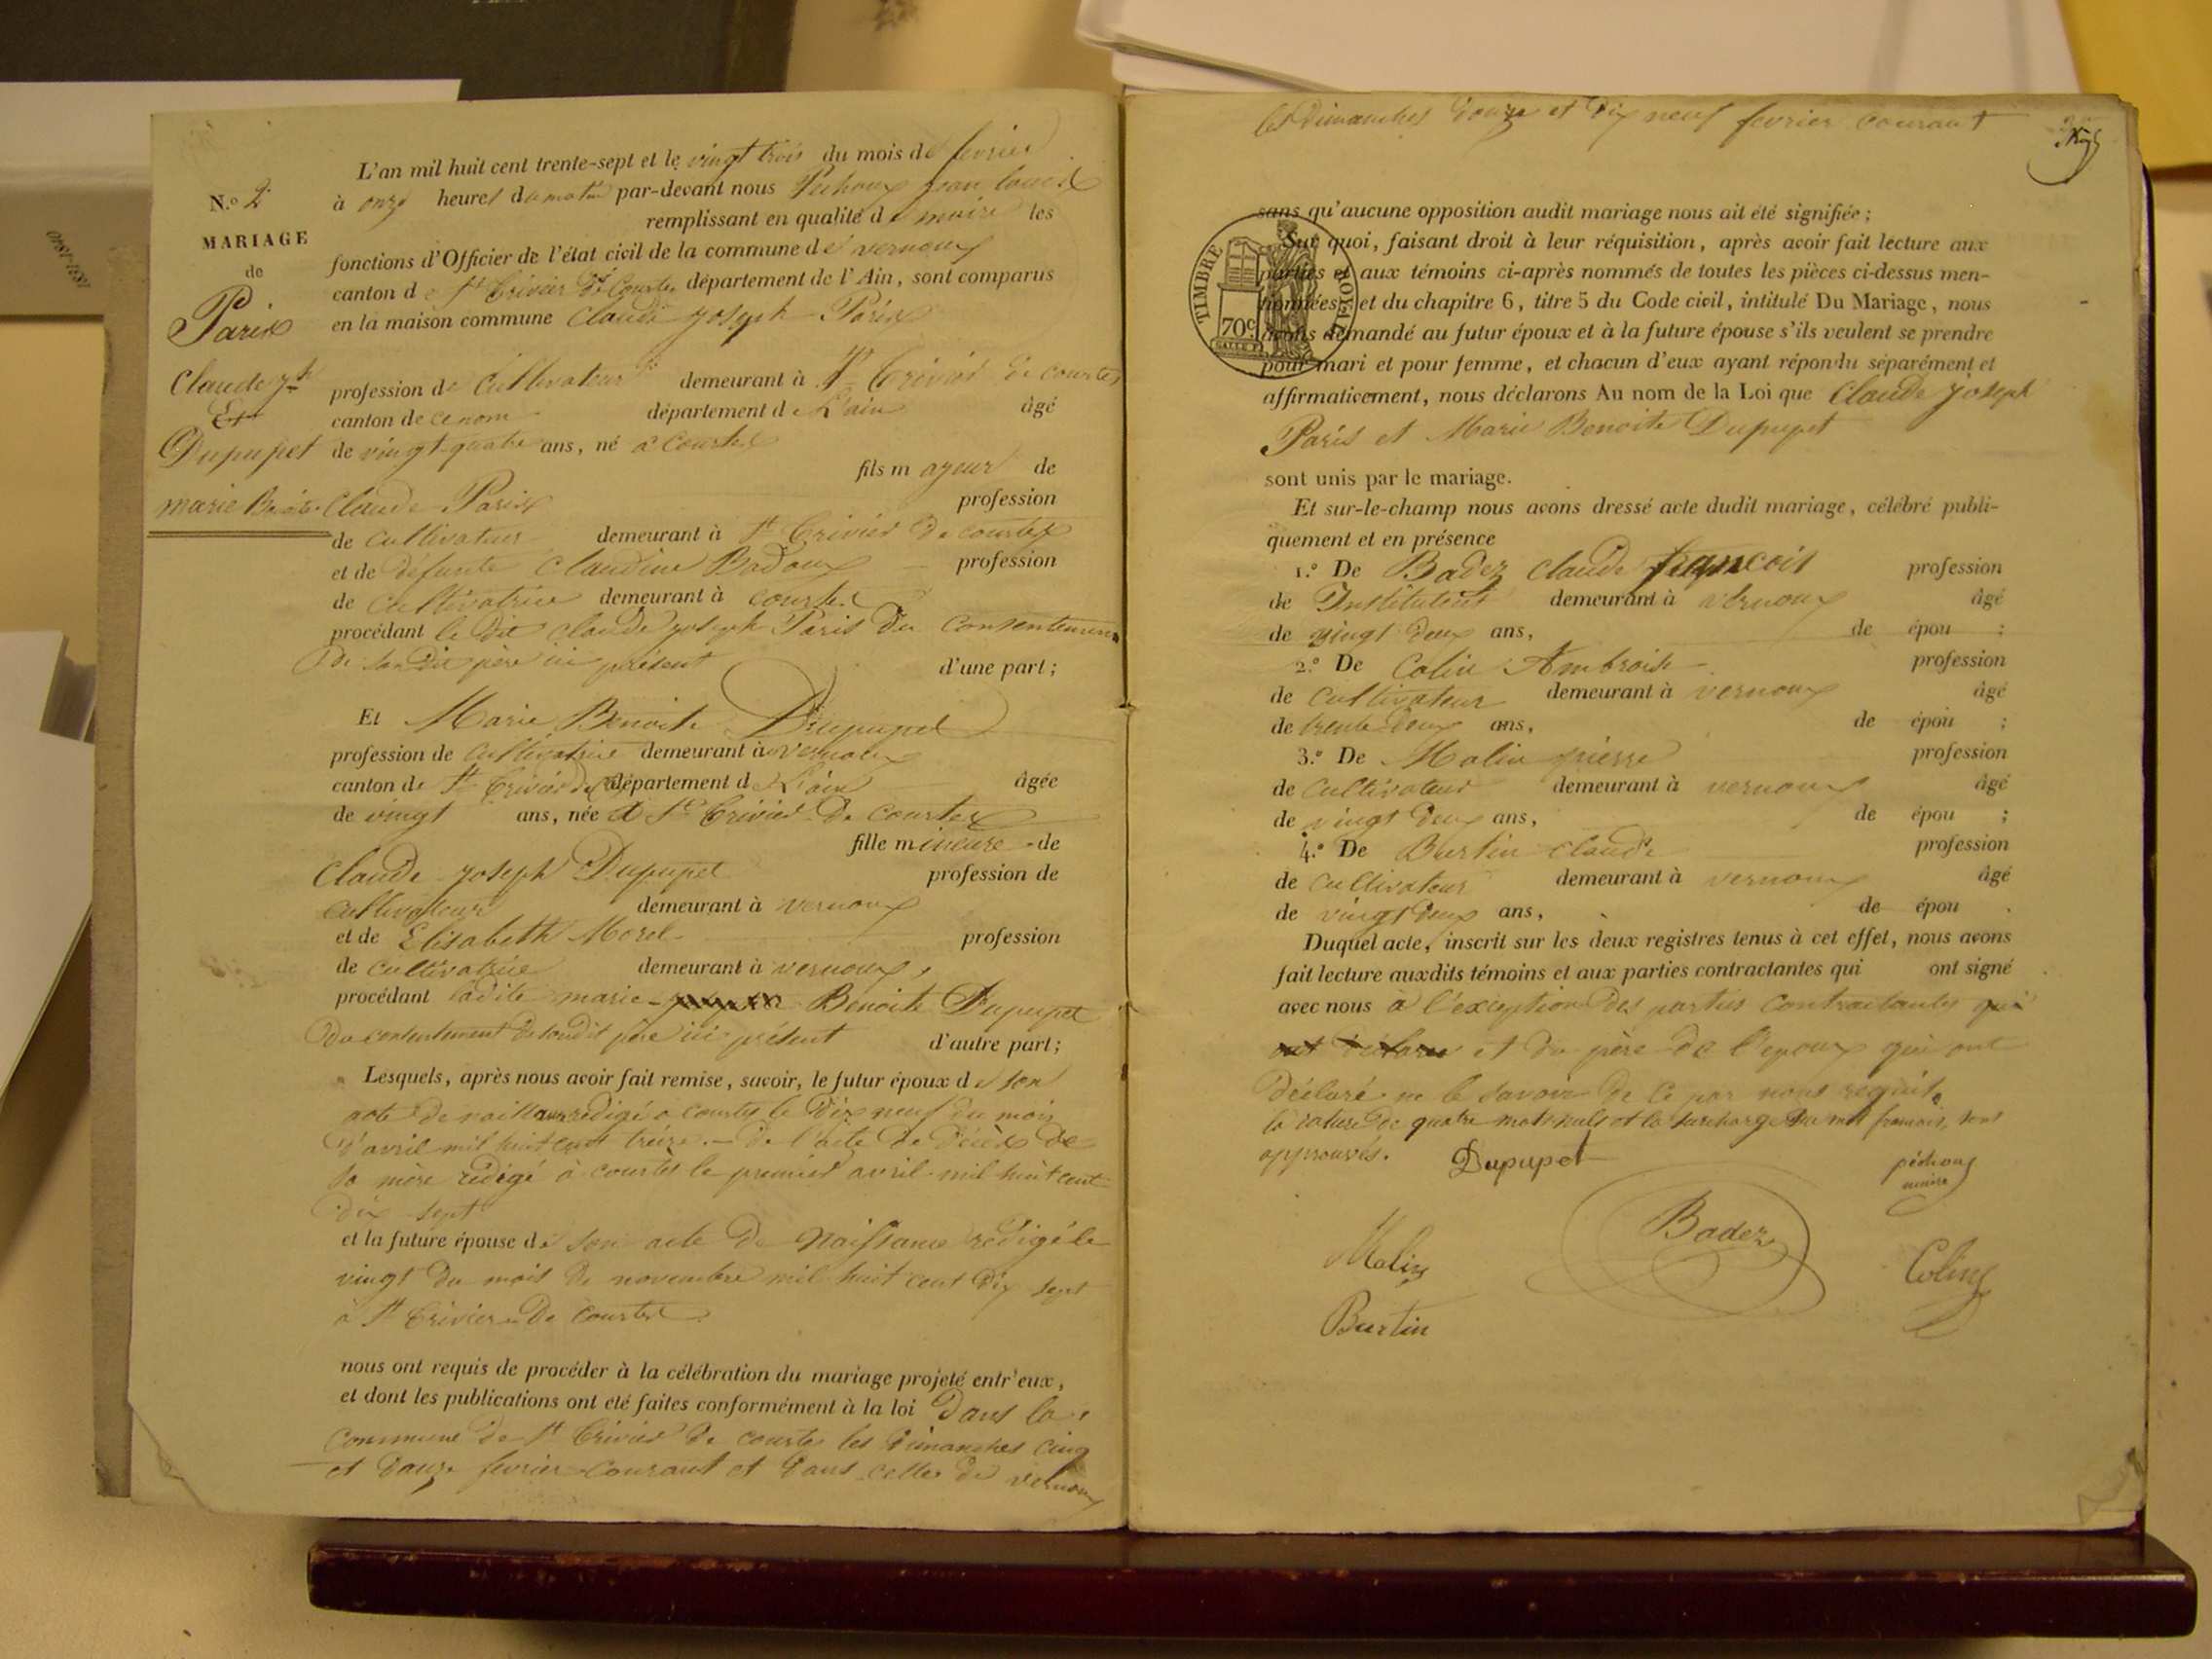 N.o 2
MARIAGE
de
Paris
Claude Jh
Et
Dupupet
marie Benoite
L'an mil huit cent trente-sept et le vingt trois du mois de fevrier
à onze heures du matin par-devant nous Pechoux jean louis
remplissant en qualité de maire les
fonctions d'Officier de l'état civil de la commune de vernoux
canton de St Trivier de Courtes département de l'Ain, sont comparus
en la maison commune Claude joseph Paris
profession de Cultivateur demeurant à St Trivier de courtes
canton de ce nom département de L'ain âgé
de vingt quatre ans, né à Courtes
fils majeur de
Claude Paris profession
de Cultivateur demeurant à St Trivier de courtes
et de défunte Claudine Badoux profession
de Cultivatrice demeurant à courtes
procédant le dit Claude joseph Paris du Consentement
De son dit père ici présent d'une part;
Et Marie Benoite Dupupet
profession de Cultivatrice demeurant à vernoux
canton de St Trivier de département de L'ain âgée
de vingt ans, née à St Trivier De Courtes
fille mineure de
Claude joseph Dupupet profession de
cultivateur demeurant à vernoux
et de Elisabeth Morel profession
de Cultivatrice demeurant à vernoux,
procédant ladite marie Benoite Dupupet
Du consentement de soudit père ici présent d'autre part;
Lesquels, après nous avoir fait remise, savoir, le futur époux de son
acte de naissance redigé a courtes le Dix neuf du mois
d'avril mil huit cent treize. - De l'acte de décès de
sa mère rédigé à courtes le premier avril mil huit cent
Dix sept
et la future épouse de son acte De Naissance redigé le
vingt du mois de novembre mil huit cent Dix sept
à St Trivier De Courtes
nous ont requis de procéder à la célébration du mariage projeté entr'eux,
et dont les publications ont été faites conformément à la loi Dans la
Commune De St Trivier De courtes les Dimanches Cinq
et Douze fevrier Courant et Dans celle de vernoux
les Dimanches Douze et Dix neuf fevrier courant
sans qu'aucune opposition audit mariage nous ait été signifiée;
TIMBRE ROYAL
70c
Sur quoi, faisant droit à leur réquisition, après avoir fait lecture aux
parties et aux témoins ci-après nommés de toutes les pièces ci-dessus men-
tionnées, et du chapitre 6, titre 5 du Code civil, intitulé Du Mariage, nous
avons demandé au futur époux et à la future épouse s'ils veulent se prendre
pour mari et pour femme, et chacun d'eux ayant répondu séparément et
affirmativement, nous déclarons Au nom de la Loi que Claude Joseph
Paris et Marie Benoite Dupupet
sont unis par le mariage.
Et sur-le-champ nous avons dressé acte dudit mariage, célébré publi-
quement et en présence
1.o De Badez Claude francois profession
de Instituteur demeurant à vernoux âgé
de vingt deux ans, de épou ;
2.o De Colin Ambroise profession
de Cultivateur demeurant à vernoux âgé
de trente deux ans, de épou ;
3.o De Malin pierre profession
de Cultivateur demeurant à vernoux âgé
de vingt deux ans, de épou ;
4.o De Burtin Claude profession
de Cultivateur demeurant à vernoux âgé
de vingt deux ans, de épou .
Duquel acte, inscrit sur les deux registres tenus à cet effet, nous avons
fait lecture auxdits témoins et aux parties contractantes qui ont signé
avec nous à l'exception des parties Contractantes qui
ont déclaré et du père de l'epoux qui ont
Déclaré ne le savoir De ce par nous requis.
la rature de quatre mots nuls et la surcharge du mot francois, sont
approuvés. Dupupet pechoux
maire
Malin Badez Colin
Burtin